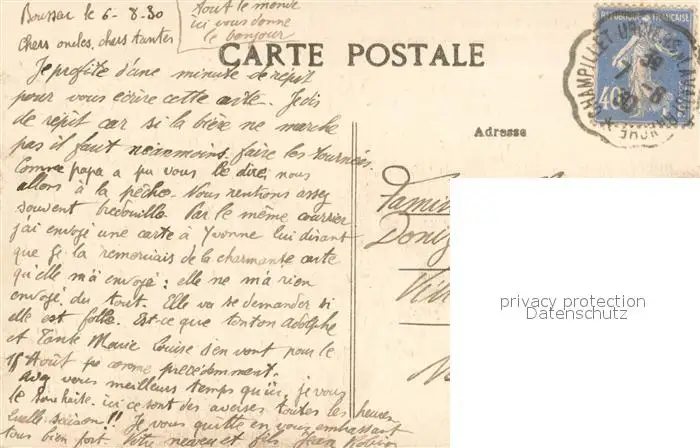 Boussac le 6-8-30
tout le monde
ici vous donne
le bonjour
Chers oncles, chers tantes
CARTE POSTALE
RÉPUBLIQUE FRANÇAISE
40c
Je profite d'une minute de répit
pour vous écrire cette carte. Je dis
de répit car si la bière ne marche
pas il faut néanmoins faire les tournées.
Comme papa a pu vous le dire, nous
allons à la pêche. Nous rentrons assez
souvent bredouille. Par le même courrier
j'ai envoyé une carte à Yvonne lui disant
que je la remerciais de la charmante carte
qu'elle m'a envoyé : elle ne m'a rien
envoyé du tout. Elle va se demander si
elle est folle. Est-ce que tonton Adolphe
et Tante Marie Louise s'en vont pour le
15 Août comme précédemment.
Avez vous meilleurs temps qu'ici, je vous
le souhaite. ici ce sont des averses toutes les heures
quelle saison!! Je vous quitte en vous embrassant
tous bien fort. Votre neveu et fils Jean
Adresse
privacy protection
Datenschutz